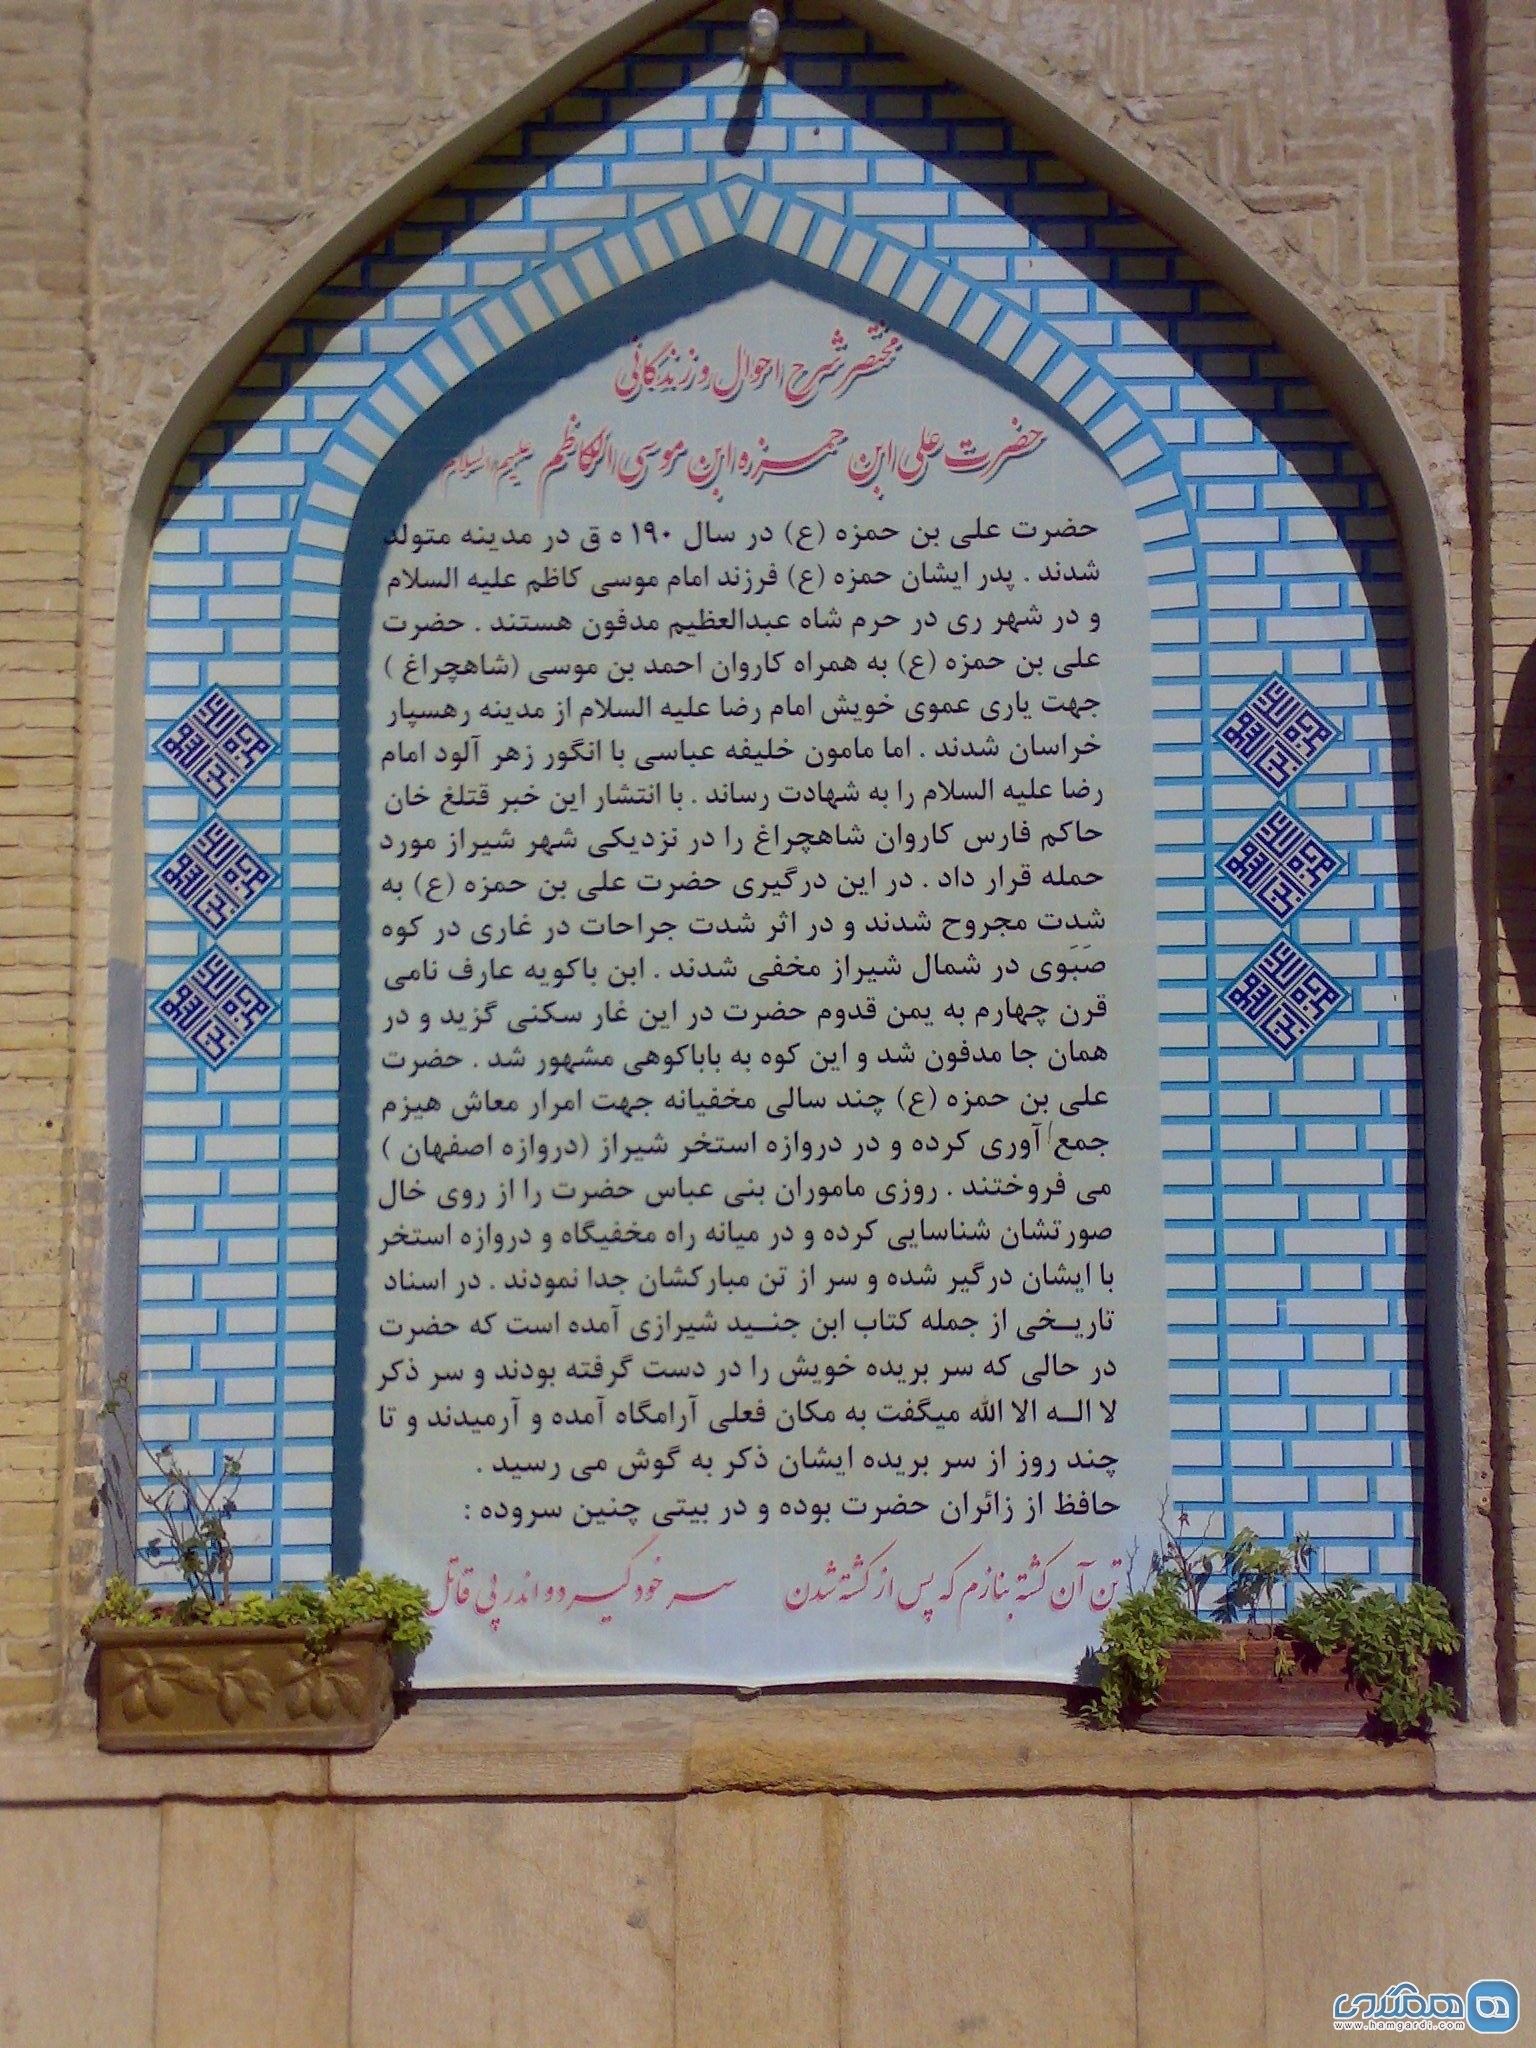 مختصر شرح احوال و زندگانی
حضرت علی ابن حمزه ابن موسی الکاظم علیهم السلام
حضرت علی بن حمزه (ع) در سال ۱۹۰ ه ق در مدینه متولد
شدند . پدر ایشان حمزه (ع) فرزند امام موسی کاظم علیه السلام
و در شهر ری در حرم شاه عبدالعظیم مدفون هستند . حضرت
علی بن حمزه (ع) به همراه کاروان احمد بن موسی (شاهچراغ )
جهت یاری عموی خویش امام رضا علیه السلام از مدینه رهسپار
خراسان شدند . اما مامون خلیفه عباسی با انگور زهر آلود امام
رضا علیه السلام را به شهادت رساند . با انتشار این خبر قتلغ خان
حاکم فارس کاروان شاهچراغ را در نزدیکی شهر شیراز مورد
حمله قرار داد . در این درگیری حضرت علی بن حمزه (ع) به
شدت مجروح شدند و در اثر شدت جراحات در غاری در کوه
صَبَوی در شمال شیراز مخفی شدند . ابن باکویه عارف نامی
قرن چهارم به یمن قدوم حضرت در این غار سکنی گزید و در
همان جا مدفون شد و این کوه به باباکوهی مشهور شد . حضرت
علی بن حمزه (ع) چند سالی مخفیانه جهت امرار معاش هیزم
جمع آوری کرده و در دروازه استخر شیراز (دروازه اصفهان )
می فروختند . روزی ماموران بنی عباس حضرت را از روی خال
صورتشان شناسایی کرده و در میانه راه مخفیگاه و دروازه استخر
با ایشان درگیر شده و سر از تن مبارکشان جدا نمودند . در اسناد
تاریخی از جمله کتاب ابن جنید شیرازی آمده است که حضرت
در حالی که سر بریده خویش را در دست گرفته بودند و سر ذکر
لا اله الا الله میگفت به مکان فعلی آرامگاه آمده و آرمیدند و تا
چند روز از سر بریده ایشان ذکر به گوش می رسید .
حافظ از زائران حضرت بوده و در بیتی چنین سروده :
تن آن کشته بنازم که پس از کشته شدن سر خود گیرد و اندر پی قاتل
همگردی
www.hamgardi.com